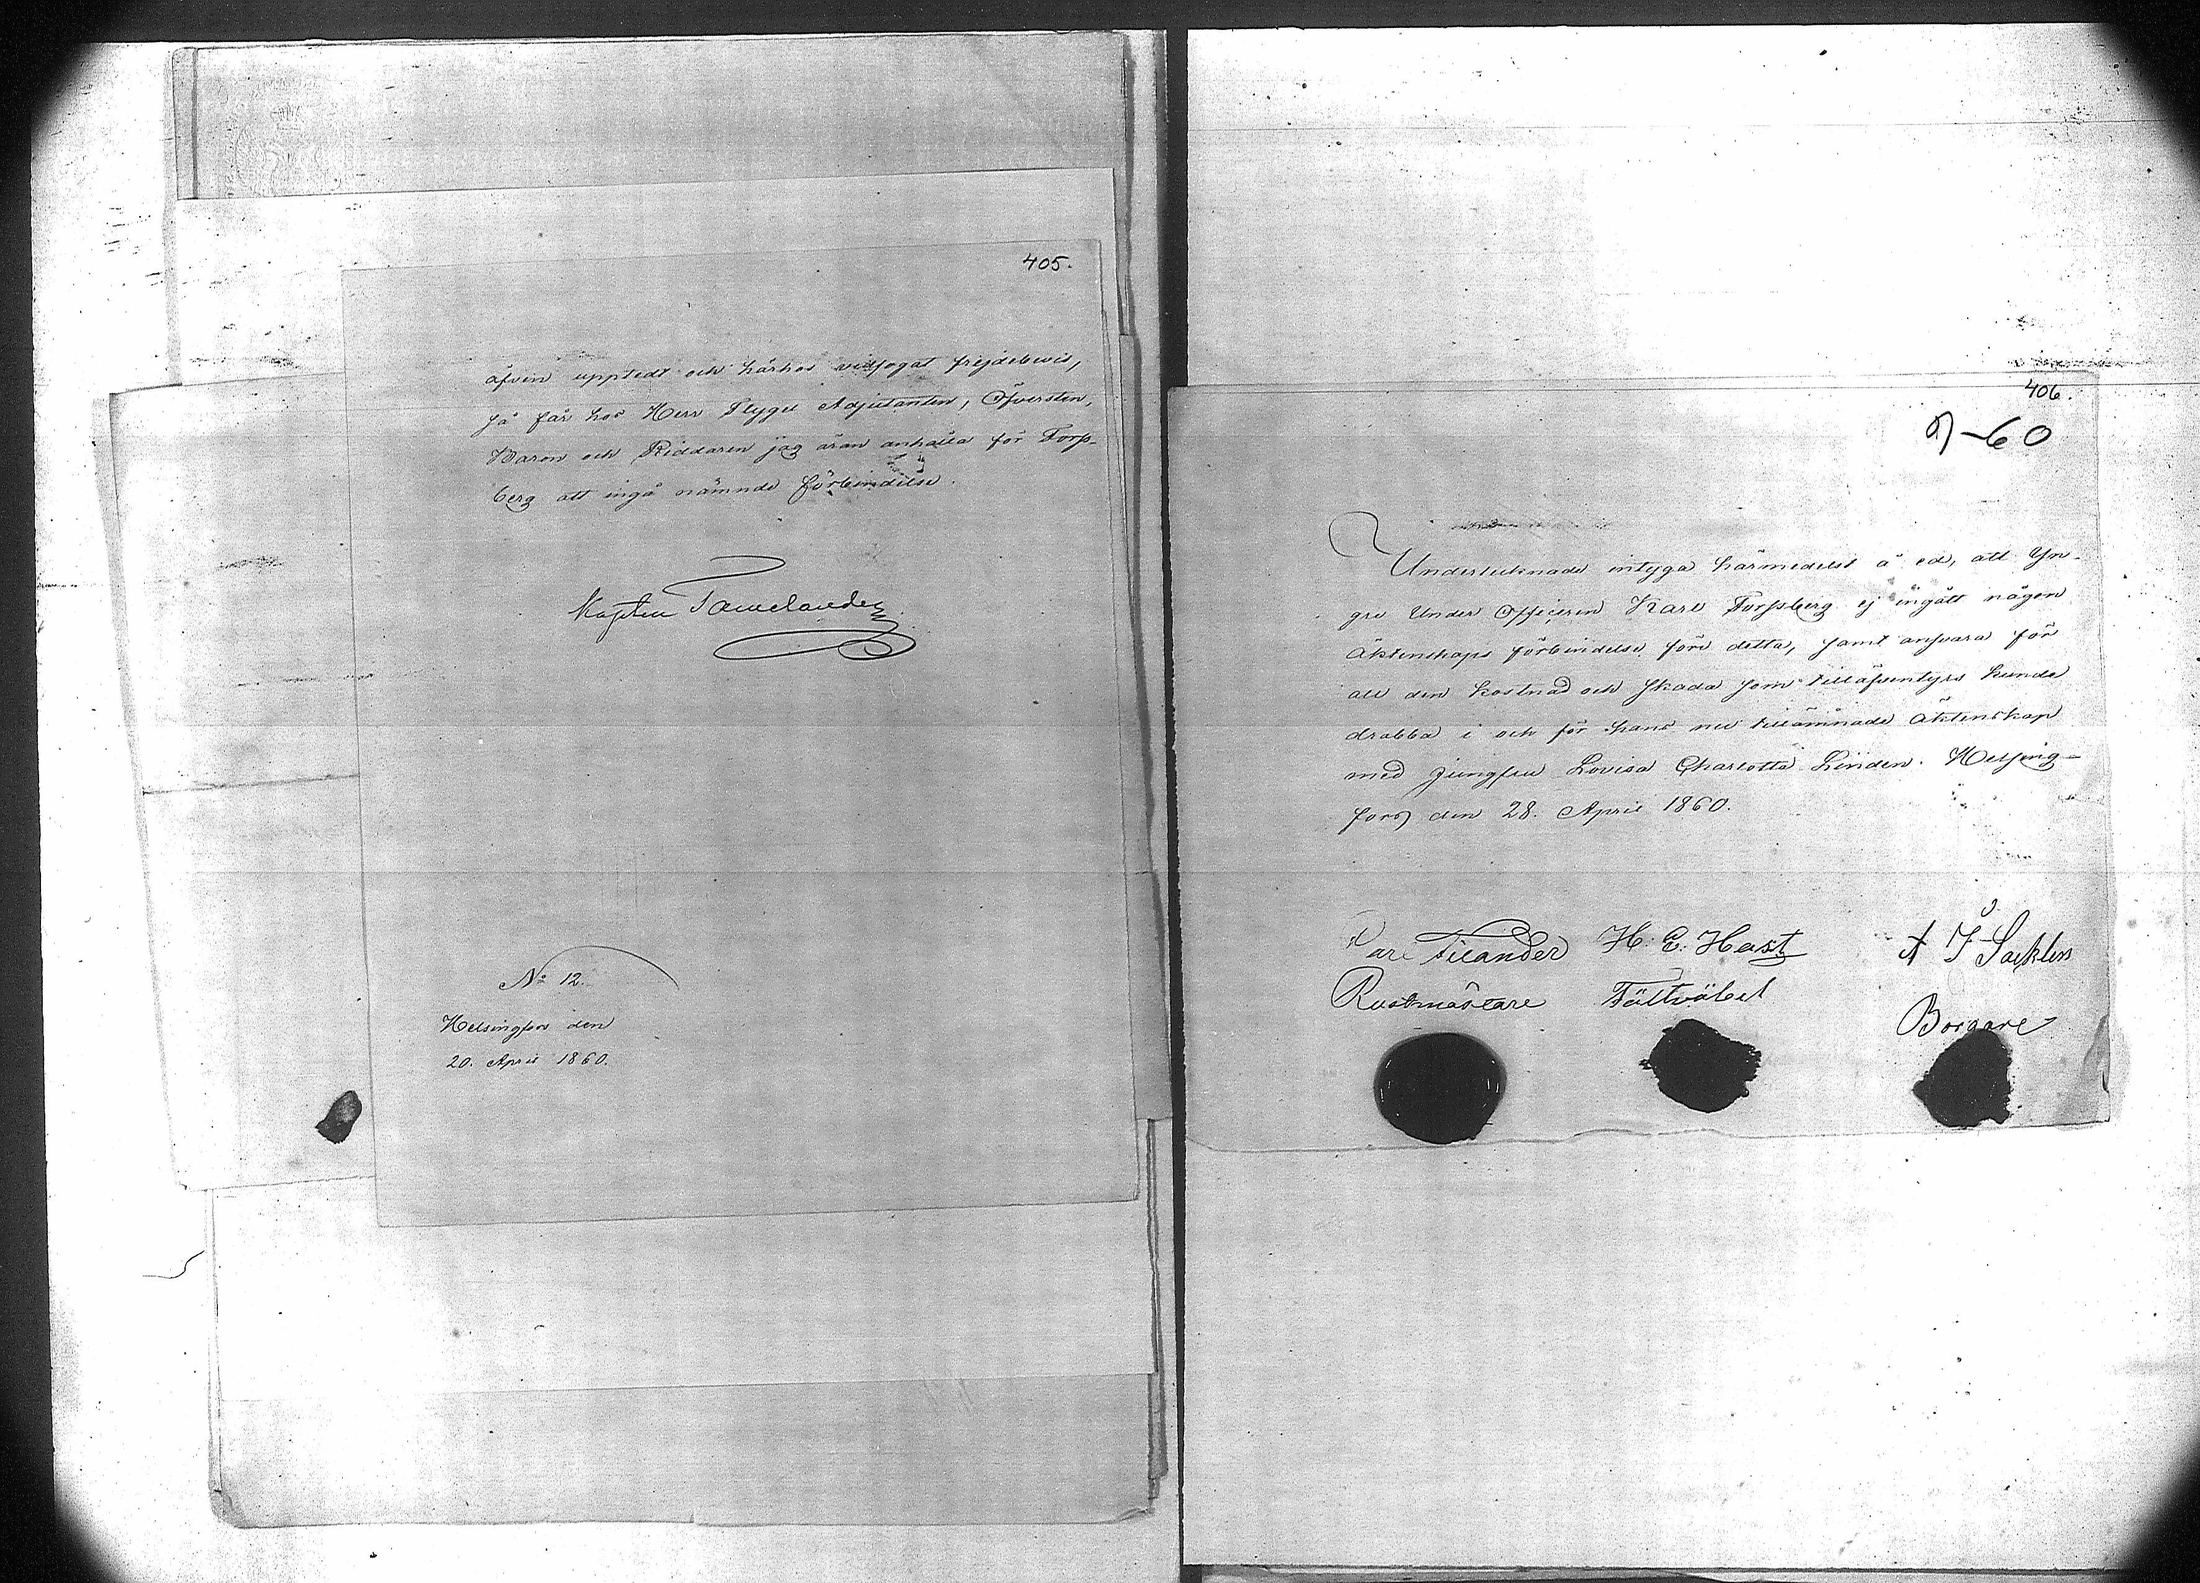 405.
äfven upptedt och härhos vidfogat frejdebevis,
så får hos Herr Flygel Adjutanten, Öfversten,
Baron och Riddaren jag äran anhålla för Forss-
berg att ingå nämnde förbindelse.
Kapten
No 12.
Helsingfors den
20. April 1860.
406.
9-60
Undertecknade intyga härmedelst å ed, att Yn-
gre Under Officeren Karl Forssberg ej ingått någon
Äktenskaps förbindelse före detta, samt ansvara för
all den kostnad och skada som tilläfventyrs kunde
drabba i och för hans nu tillämnade Äktenskap
med jungfru Lovisa Charlotta Linden. Helsing-
fors den 28. April 1860.
Karl Tilander H. E. Hast A J
Rustmästare Fältväbel
Borgare